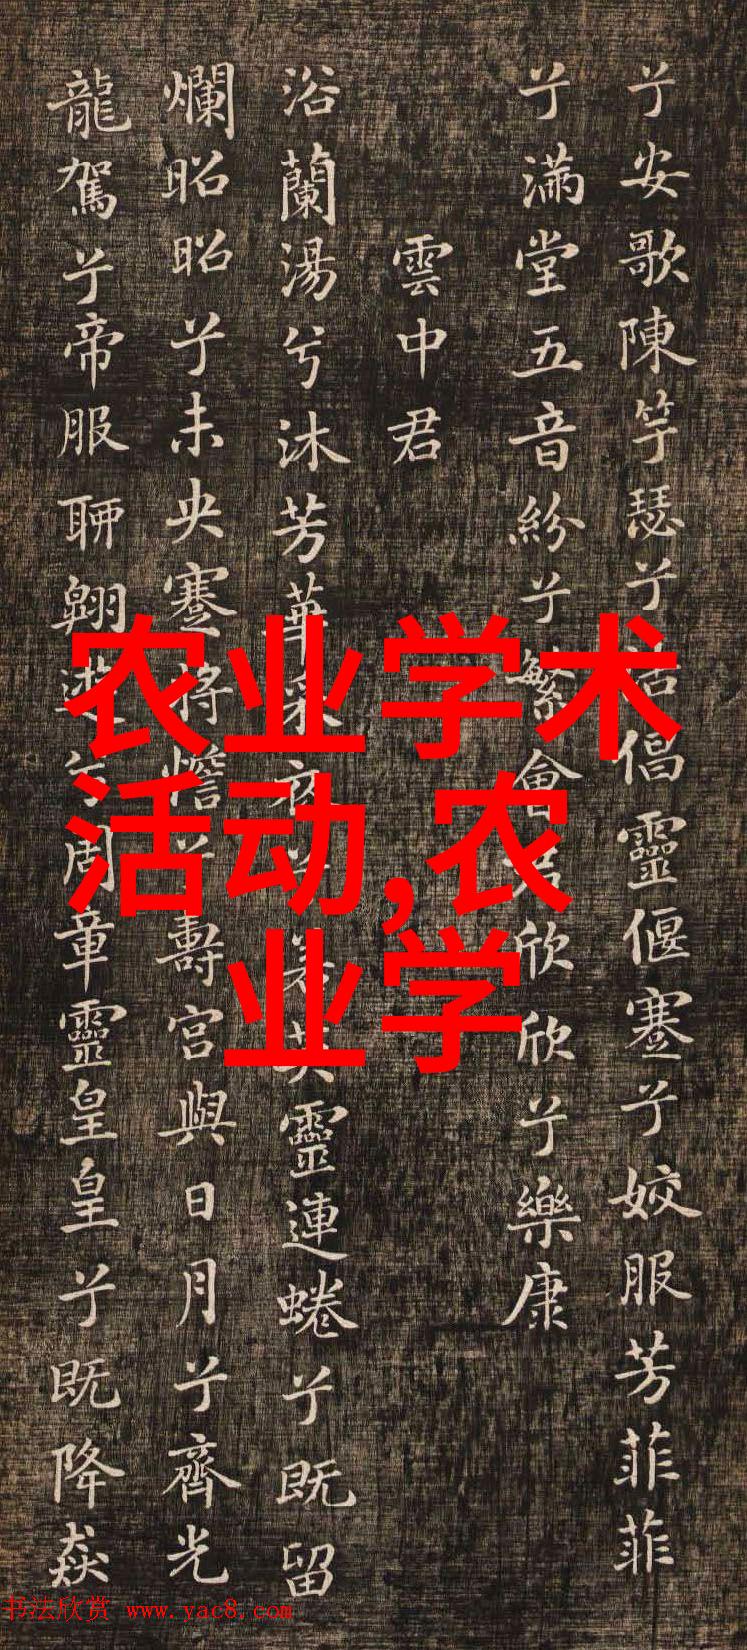 兮安歌陳竽瑟兮浩倡靈偃蹇兮姣服芳菲菲
兮滿堂五音紛兮繁會君欣欣兮樂康
雲中君
浴蘭湯兮沐芳華采衣兮若英靈連蜷兮既留
爛昭昭兮未央蹇將憺兮壽宮與日月兮齊光
龍駕兮帝服聊翱遊兮周章靈皇皇兮既降猋
农业学术
活动,农
业学
书法欣赏 www.yac8.com